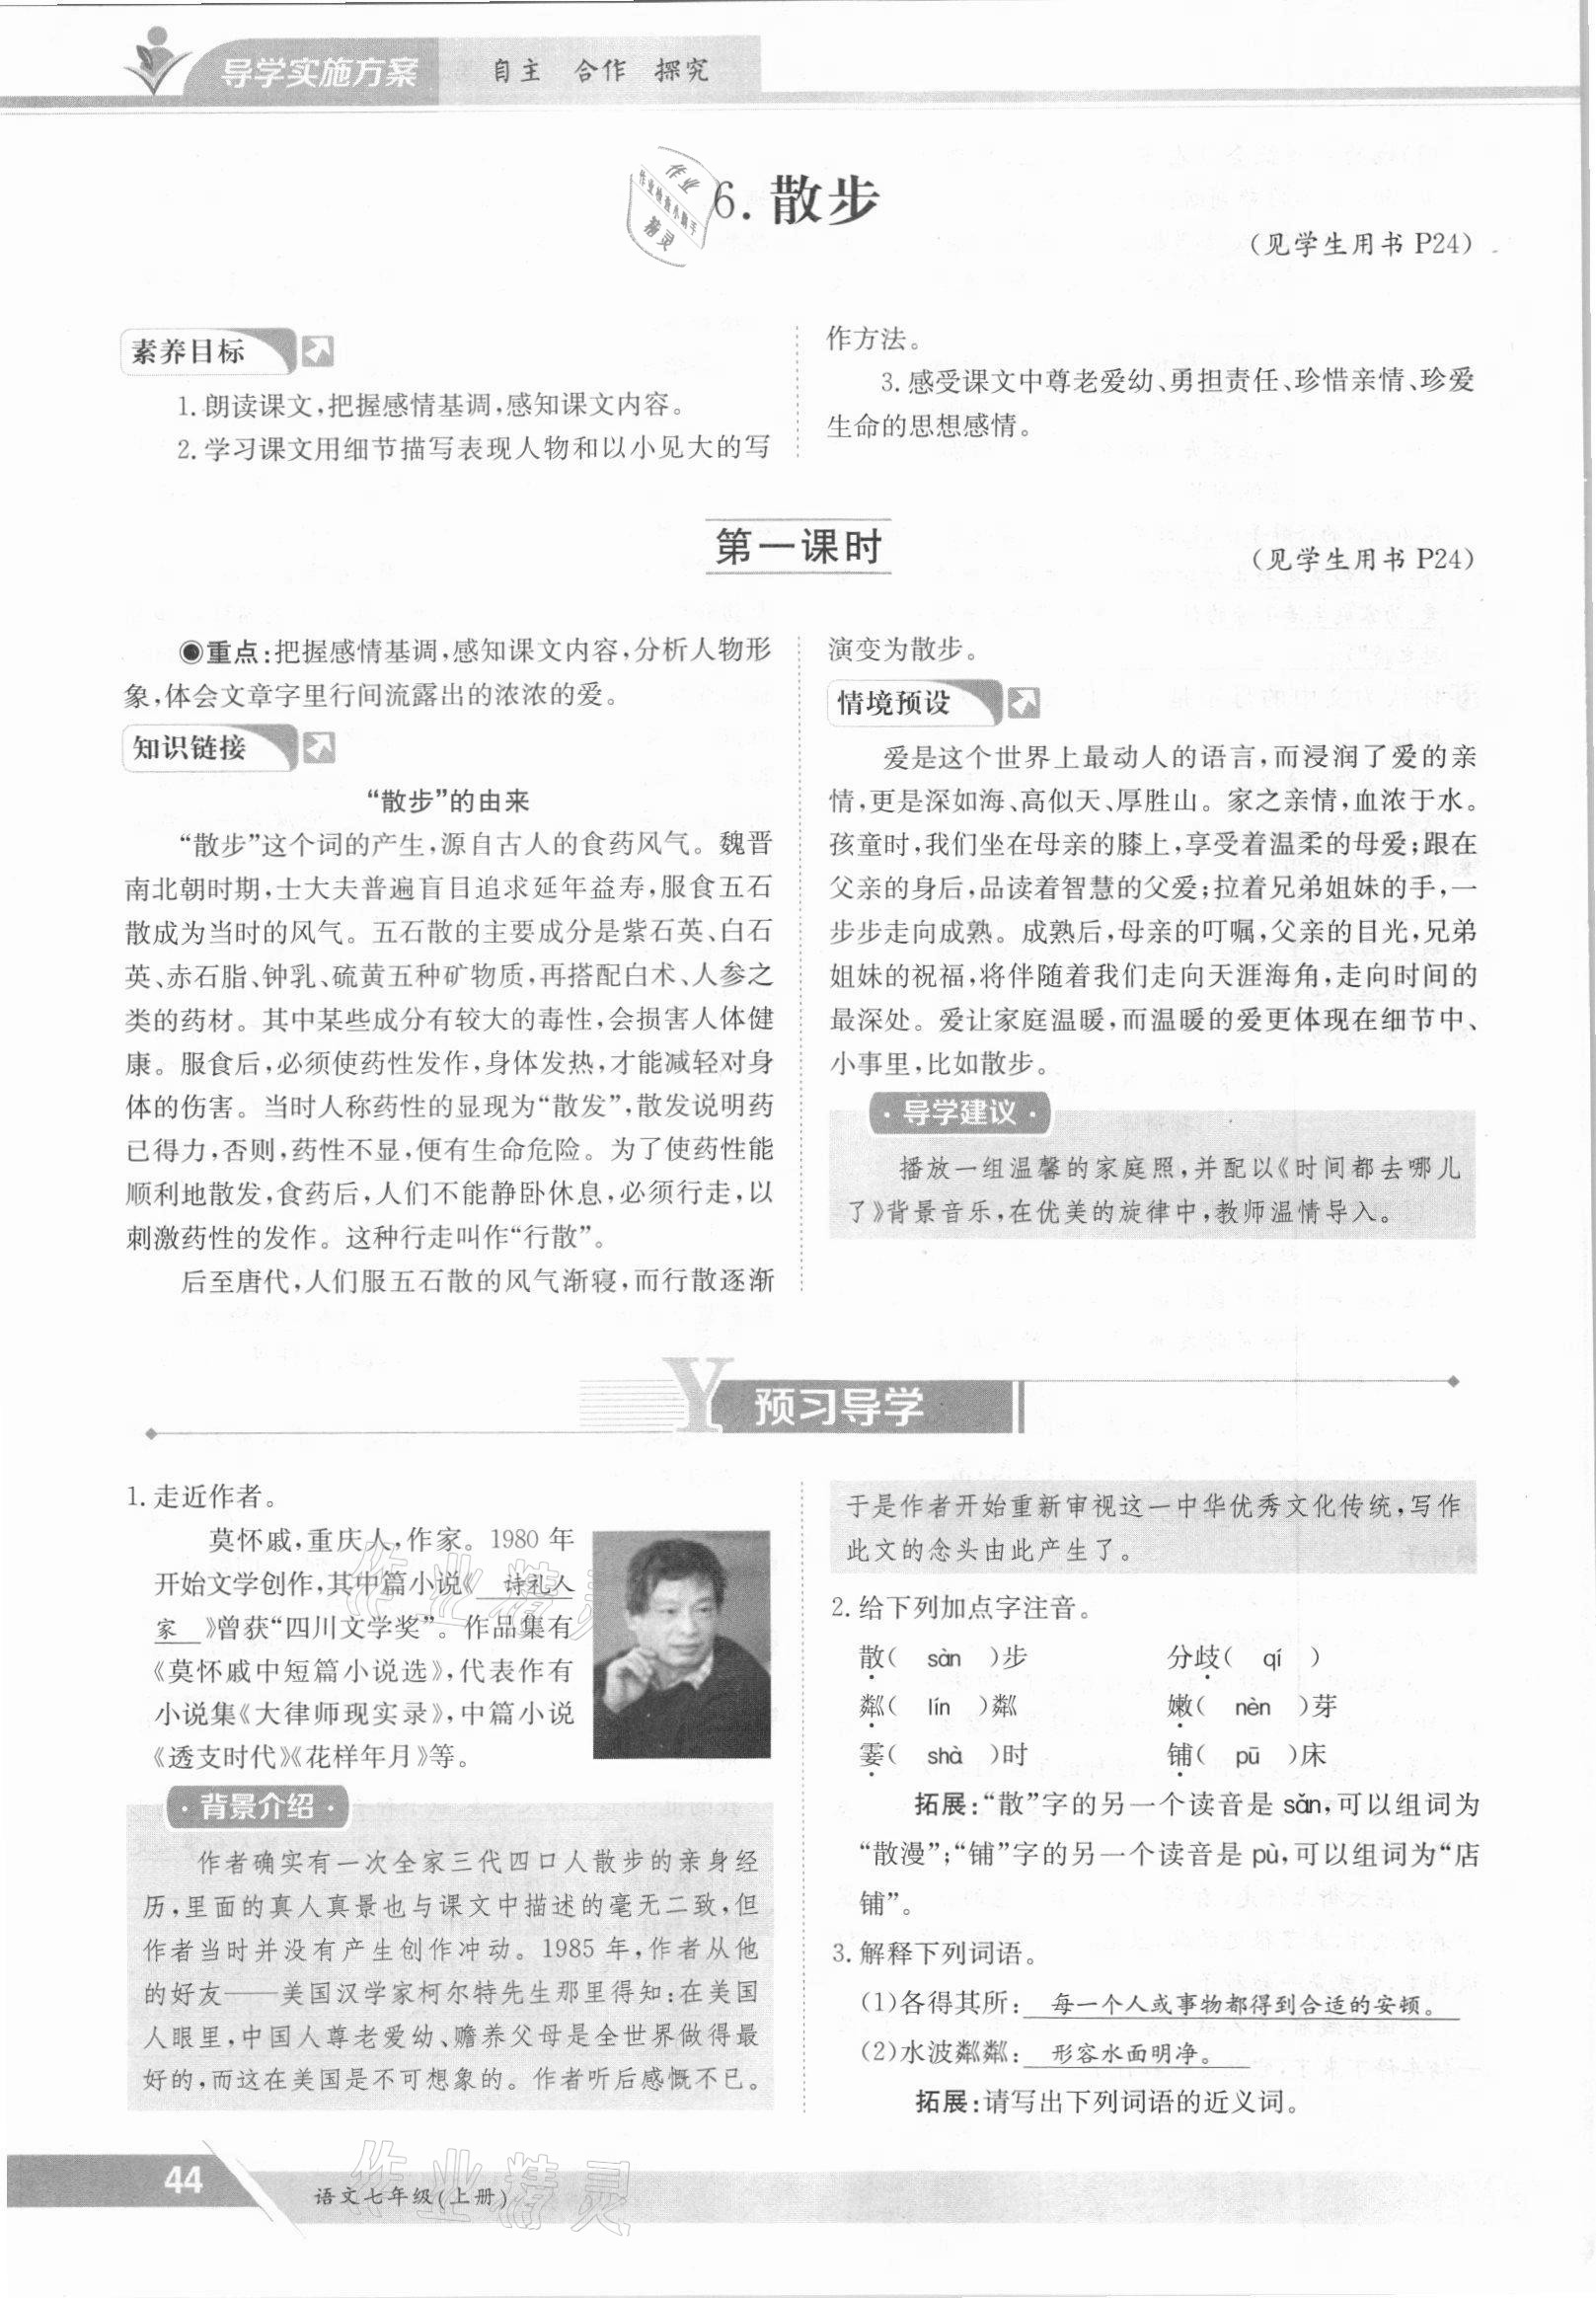 导学实施方案
自主 合作 探究
6. 散步
(见学生用书 P24)
素养目标
1. 朗读课文,把握感情基调,感知课文内容。
2. 学习课文用细节描写表现人物和以小见大的写
作方法。
3. 感受课文中尊老爱幼、勇担责任、珍惜亲情、珍爱
生命的思想感情。
第一课时
(见学生用书 P24)
◉重点:把握感情基调,感知课文内容,分析人物形
象,体会文章字里行间流露出的浓浓的爱。
知识链接
“散步”的由来
“散步”这个词的产生,源自古人的食药风气。魏晋
南北朝时期,士大夫普遍盲目追求延年益寿,服食五石
散成为当时的风气。五石散的主要成分是紫石英、白石
英、赤石脂、钟乳、硫黄五种矿物质,再搭配白术、人参之
类的药材。其中某些成分有较大的毒性,会损害人体健
康。服食后,必须使药性发作,身体发热,才能减轻对身
体的伤害。当时人称药性的显现为“散发”,散发说明药
已得力,否则,药性不显,便有生命危险。为了使药性能
顺利地散发,食药后,人们不能静卧休息,必须行走,以
刺激药性的发作。这种行走叫作“行散”。
后至唐代,人们服五石散的风气渐寝,而行散逐渐
演变为散步。
情境预设
爱是这个世界上最动人的语言,而浸润了爱的亲
情,更是深如海、高似天、厚胜山。家之亲情,血浓于水。
孩童时,我们坐在母亲的膝上,享受着温柔的母爱;跟在
父亲的身后,品读着智慧的父爱;拉着兄弟姐妹的手,一
步步走向成熟。成熟后,母亲的叮嘱,父亲的目光,兄弟
姐妹的祝福,将伴随着我们走向天涯海角,走向时间的
最深处。爱让家庭温暖,而温暖的爱更体现在细节中、
小事里,比如散步。
· 导学建议 ·
播放一组温馨的家庭照,并配以《时间都去哪儿
了》背景音乐,在优美的旋律中,教师温情导入。
Y 预习导学
1. 走近作者。
莫怀戚,重庆人,作家。1980 年
开始文学创作,其中篇小说《 诗礼人
家 》曾获“四川文学奖”。作品集有
《莫怀戚中短篇小说选》,代表作有
小说集《大律师现实录》,中篇小说
《透支时代》《花样年月》等。
· 背景介绍 ·
作者确实有一次全家三代四口人散步的亲身经
历,里面的真人真景也与课文中描述的毫无二致,但
作者当时并没有产生创作冲动。1985 年,作者从他
的好友——美国汉学家柯尔特先生那里得知:在美国
人眼里,中国人尊老爱幼、赡养父母是全世界做得最
好的,而这在美国是不可想象的。作者听后感慨不已。
于是作者开始重新审视这一中华优秀文化传统,写作
此文的念头由此产生了。
2. 给下列加点字注音。
散( sàn )步 分歧( qí )
粼( lín )粼 嫩( nèn )芽
霎( shà )时 铺( pū )床
拓展:“散”字的另一个读音是 sǎn,可以组词为
“散漫”;“铺”字的另一个读音是 pù,可以组词为“店
铺”。
3. 解释下列词语。
(1)各得其所: 每一个人或事物都得到合适的安顿。
(2)水波粼粼: 形容水面明净。
拓展:请写出下列词语的近义词。
44
语文七年级(上册)
作业
作业检查小助手
精灵
作业精灵
作业精灵